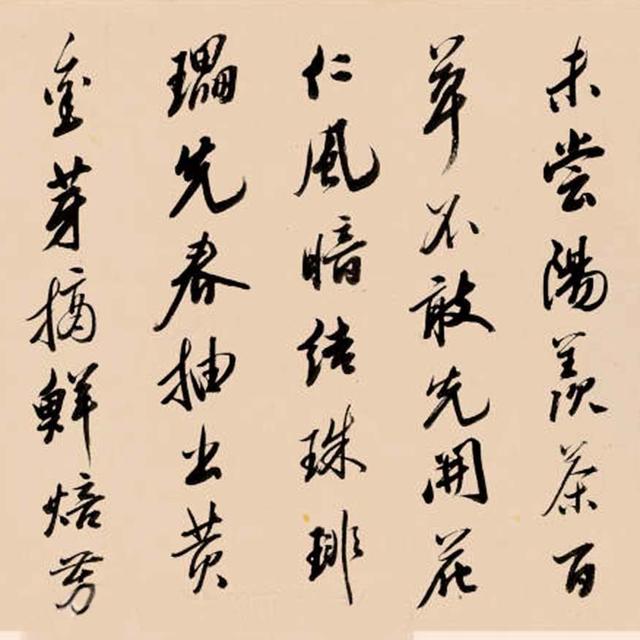 未尝陽羨茶百
草不敢先開花
仁風暗結珠琲
瓃先春抽出黄
金芽摘鮮焙芳